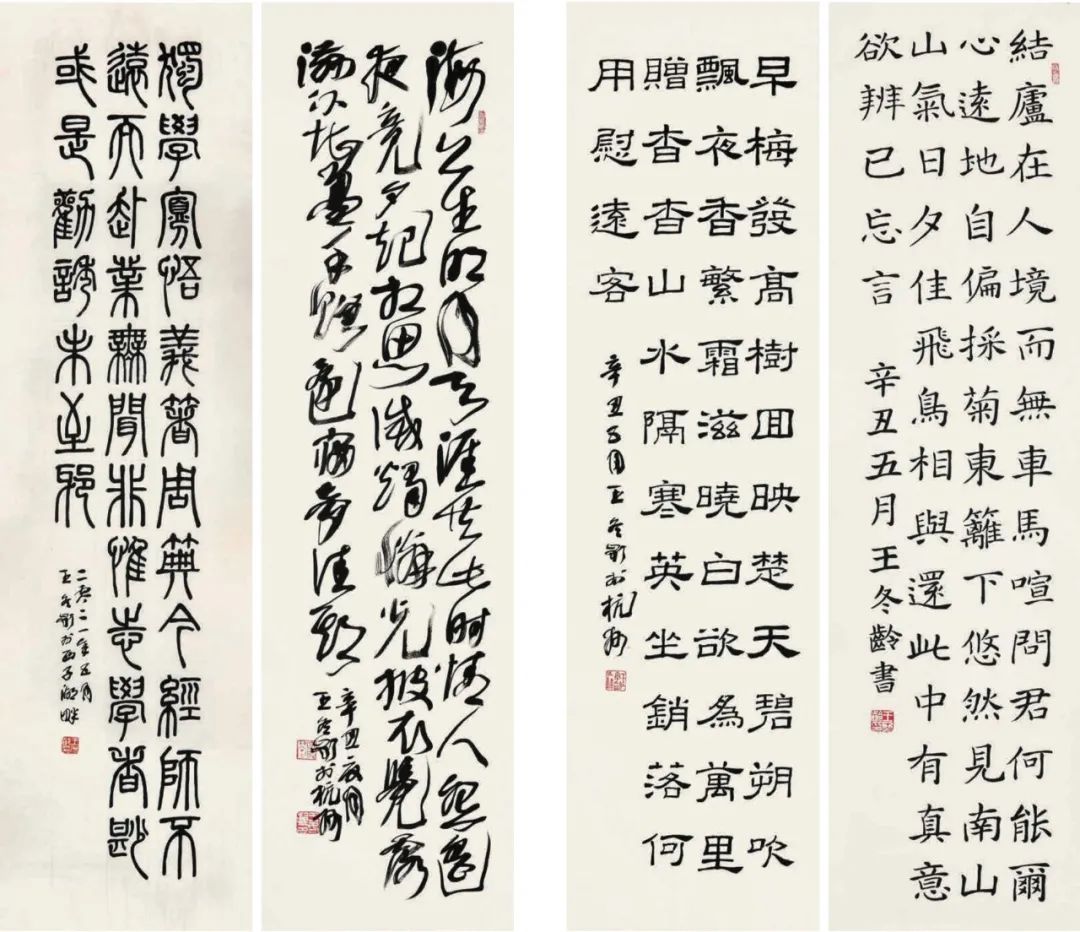 結廬在人境而無車馬喧問君何能爾
心遠地自偏採菊東籬下悠然見南山
山氣日夕佳飛鳥相與還此中有真意
欲辨已忘言
辛丑五月王冬齡書
早梅發高樹迥映楚天碧朔吹
飄夜香繁霜滋曉白欲為萬里
贈杳杳山水隔寒英坐銷落何
用慰遠客
辛丑五月王冬齡於杭州
海上生明月天涯共此時情人怨遙
夜竟夕起相思滅燭憐光披衣覺露
滋不堪盈手贈還寢夢佳期
辛丑夏月
王冬齡於杭州
獨學寡悟義著周典今經師不
遠而赴業無聞非惟志學者尟
或是勸誘未至邪
二〇二一年五月
王冬齡於西子湖畔